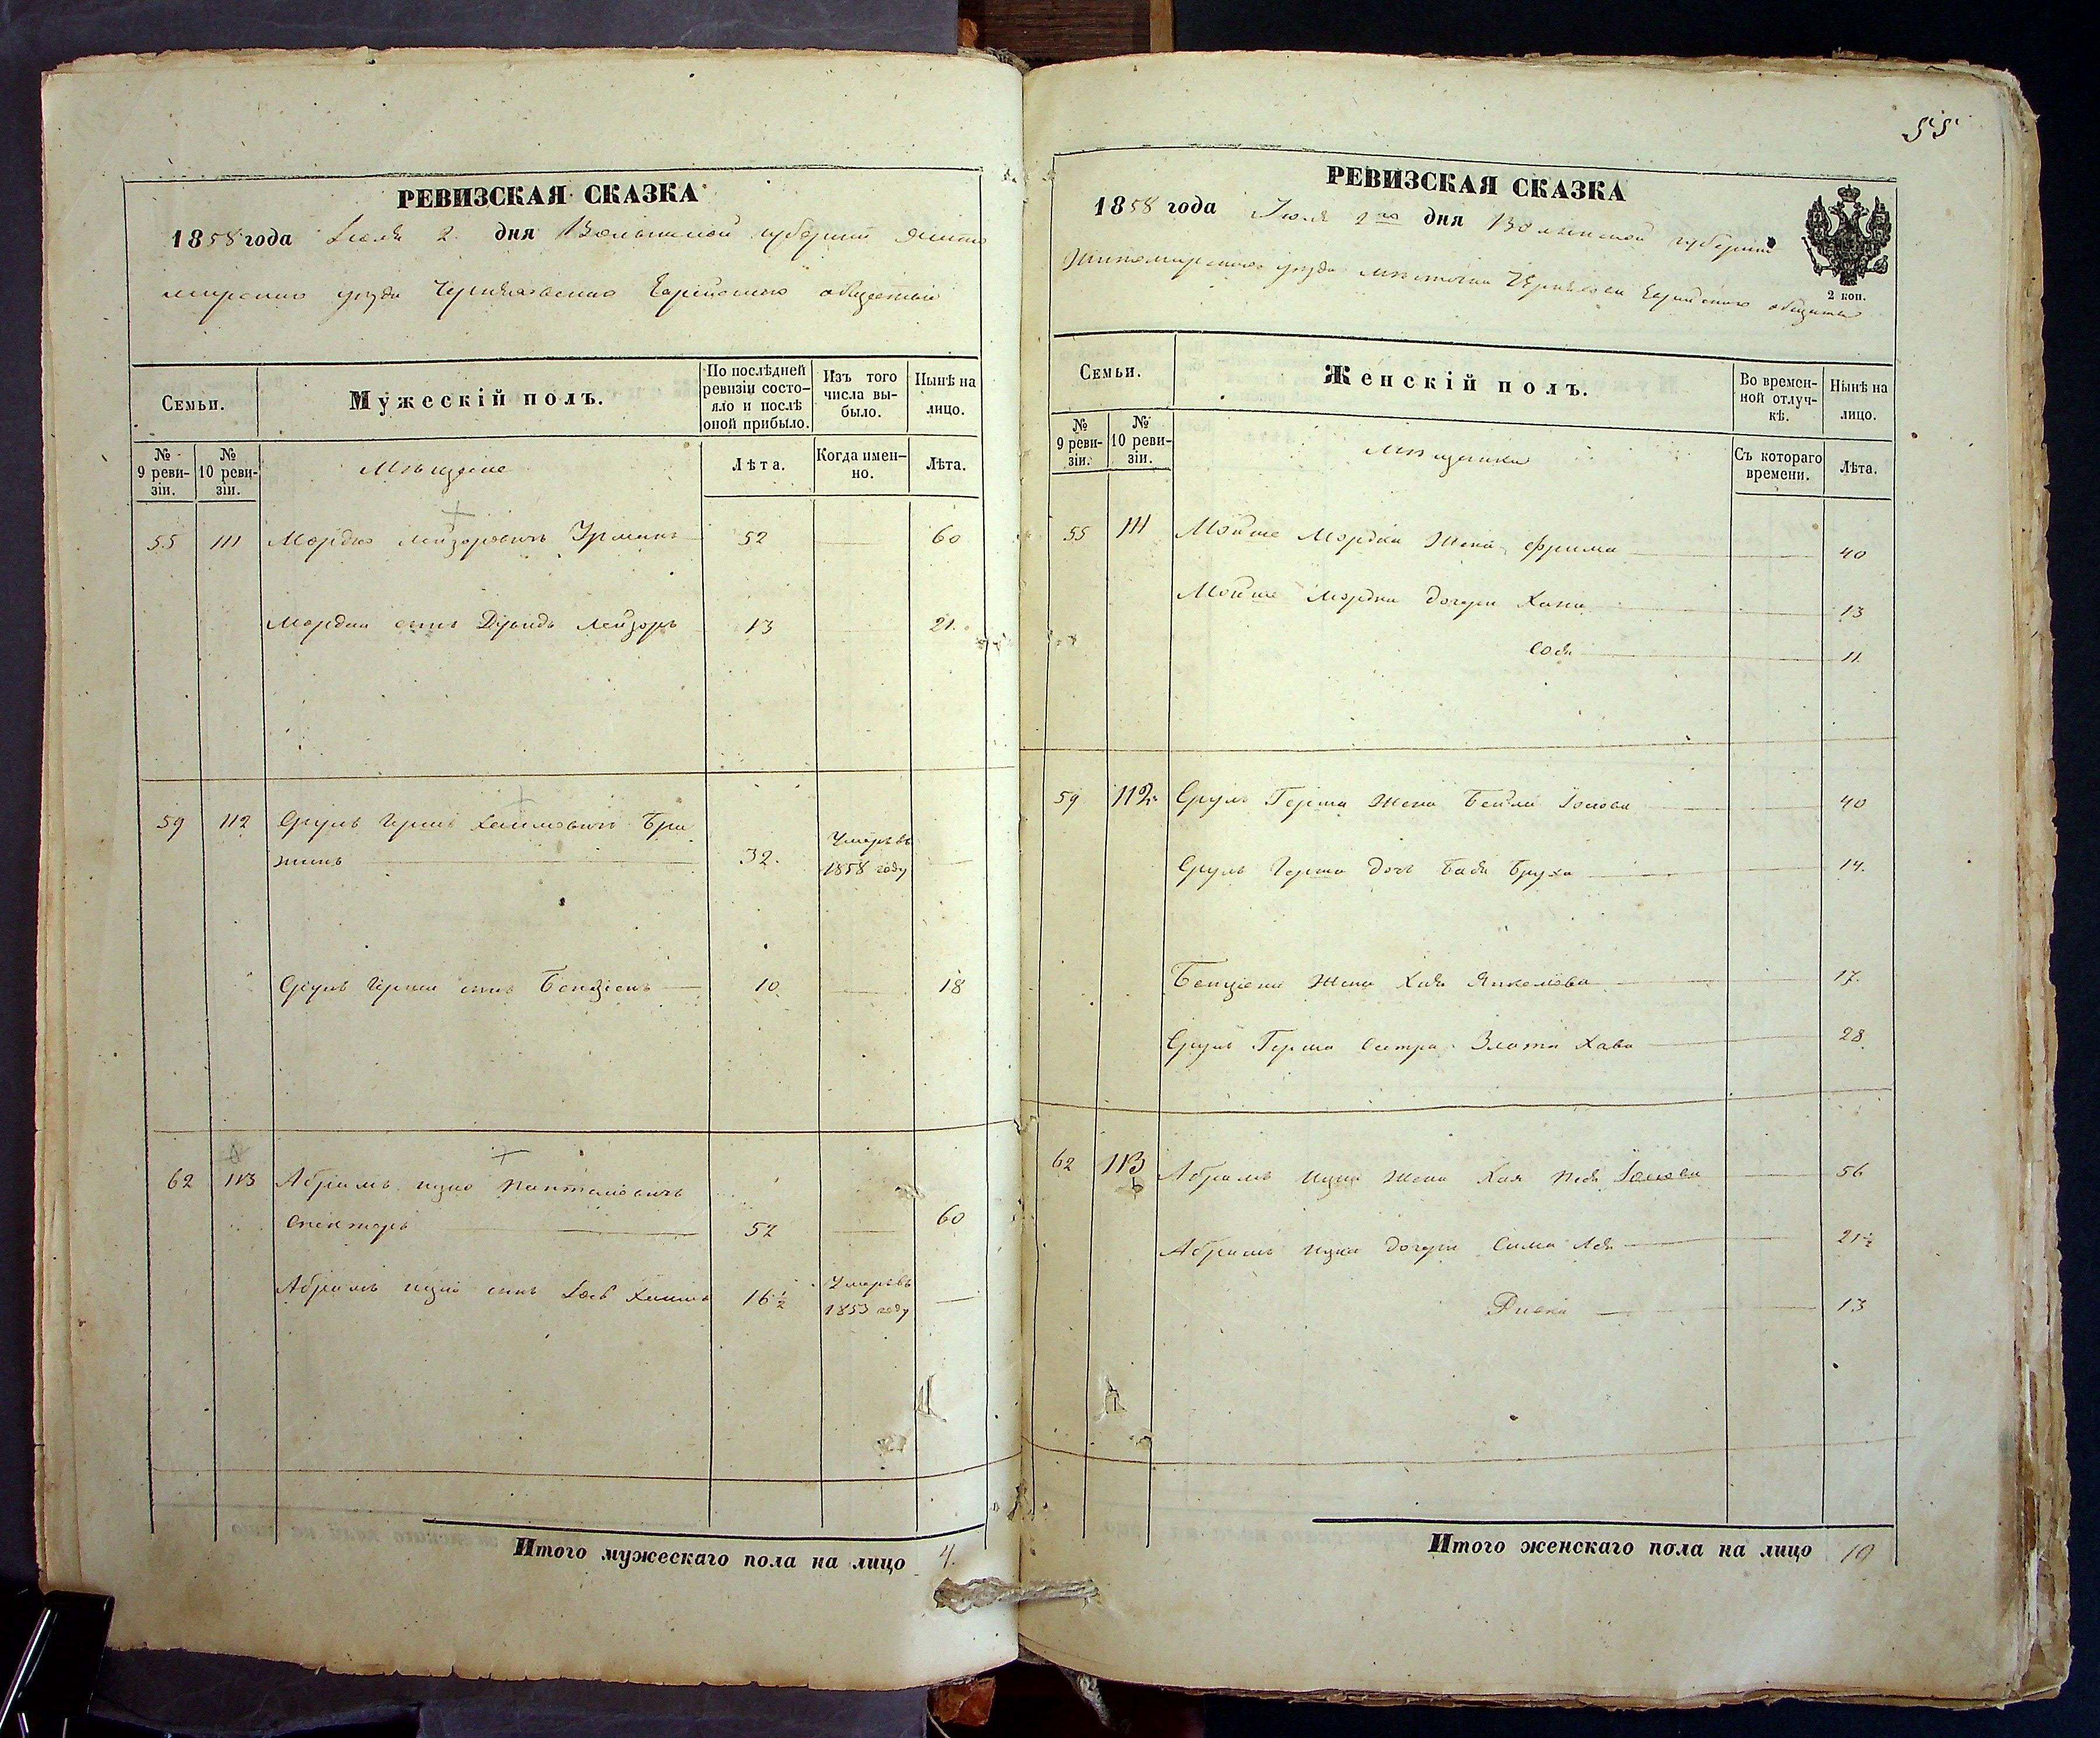 РЕВИЗСКАЯ СКАЗКА
1858 года Іюля 2 дня Волынской губерніи Жито
мирскаго уѣзда Черняховскаго Еврейскаго общества
Семьи.
Мужескій полъ.
По послѣдней ревизіи состо-
яло и послѣ оной прибыло.
Изъ того числа вы-
было.
Нынѣ на лицо.
№ 9 реви-
зіи.
№ 10 реви-
зіи.
Мѣщане
Лѣта.
Когда имен-
но.
Лѣта.
55 111 Мордко Лейзоровичъ Урманъ 52 — 60
Мордки сынъ Дувидъ Лейзоръ 13 — 21.
59 112 Сруль Гершъ Хаимовичъ Бри
жинъ 32. Умеръ въ 1858 году —
Сруль Герша сынъ Бенціонъ 10 — 18
62 113 Абрамъ Ицко
Спекторъ 52 — 60
Абрамъ Ицка сынъ Іосъ Хаимъ 16 ½ Умеръ въ 1853 году —
Итого мужескаго пола на лицо 4.
55
РЕВИЗСКАЯ СКАЗКА
1858 года Іюля 2го дня Волынской губерніи
Житомирскаго уѣзда мѣстечка Черняхова Еврейскаго общества
2 коп.
Семьи.
Женскій полъ.
Во времен-
ной отлуч-
кѣ.
Нынѣ на лицо.
№ 9 реви-
зіи.
№ 10 реви-
зіи.
Мѣщанки
Съ котораго времени.
Лѣта.
55 111 Мойше Мордка жена Фрима — 40
Мойше Мордки дочери Хана — 13
Собя — 11
59 112 Сруль Герша жена Бейла — 40
Сруль Герша дочь Бася Бруха — 14.
Бенціона жена Хая Янкелева — 17.
Сруль Герша сестра Злата Хава — 28
62 113 Абрамъ Ицка жена Хая — 56
Абрамъ Ицка дочери Сима — 21½
— 13
Итого женскаго пола на лицо 10